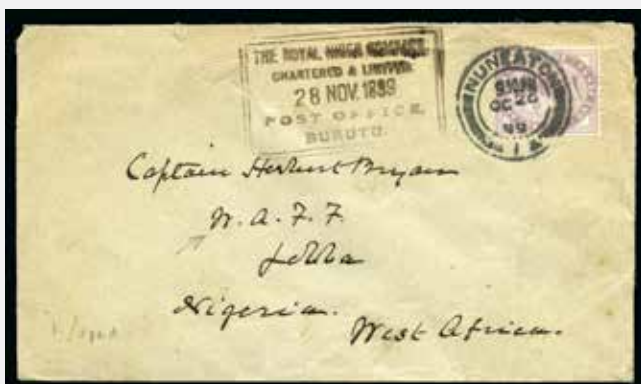 THE ROYAL NIGER COMPANY,
CHARTERED & LIMITED.
28 NOV. 1899
POST OFFICE,
BURUTU.
NUNEATON
OC 26
99
Captain Herbert Bryan
W. A. F. F
Jebba
Nigeria.
West Africa.